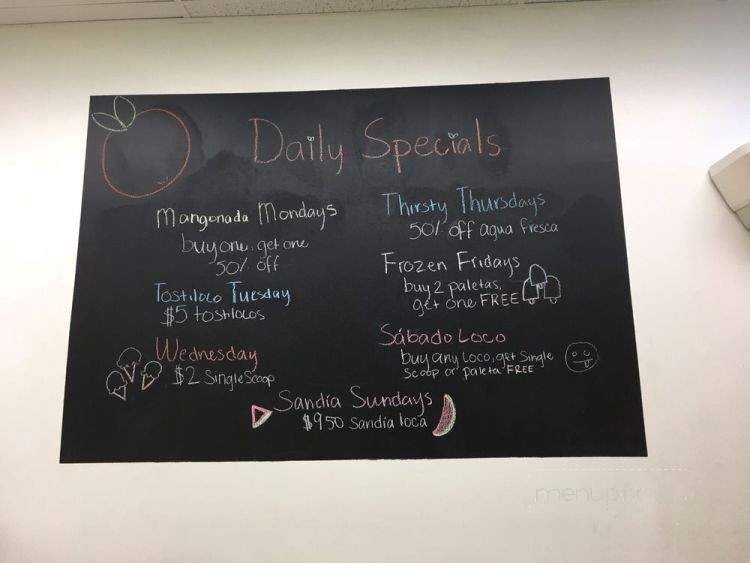 Daily Specials
Mangonada Mondays
buy one, get one
50% off
Tostiloco Tuesday
$5 tostilocos
Wednesday
$2 Single Scoop
Thirsty Thursdays
50% off agua fresca
Frozen Fridays
buy 2 paletas,
get one FREE
Sábado Loco
buy any Loco, get Single
Scoop or paleta FREE
Sandia Sundays
$9.50 Sandia loca
menupix